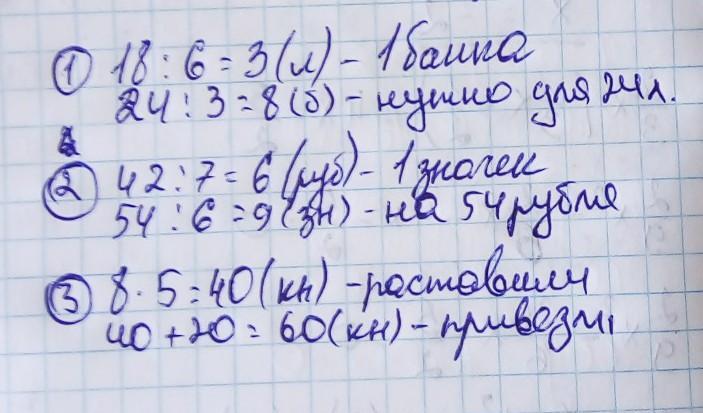 ① 18 : 6 = 3 (л) - 1 банка
24 : 3 = 8 (б) - нужно для 24 л.
② 42 : 7 = 6 (руб) - 1 значек
54 : 6 = 9 (зн) - на 54 рубля
③ 8 · 5 = 40 (кн) - расставили
40 + 20 = 60 (кн) - привезли